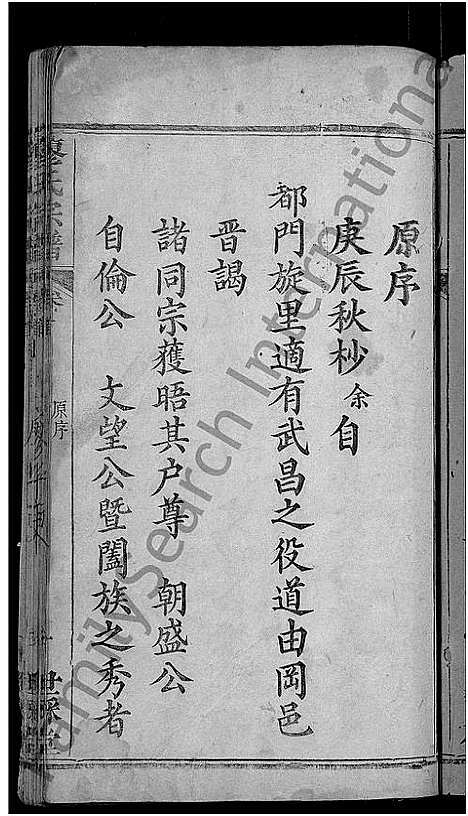 原序
庚辰秋杪余自
都門旋里適有武昌之役道由岡邑
晋謁
諸同宗獲晤其户尊 朝盛公
自倫公 文望公暨闔族之秀者
廖氏宗譜
原序
FamilySearch International